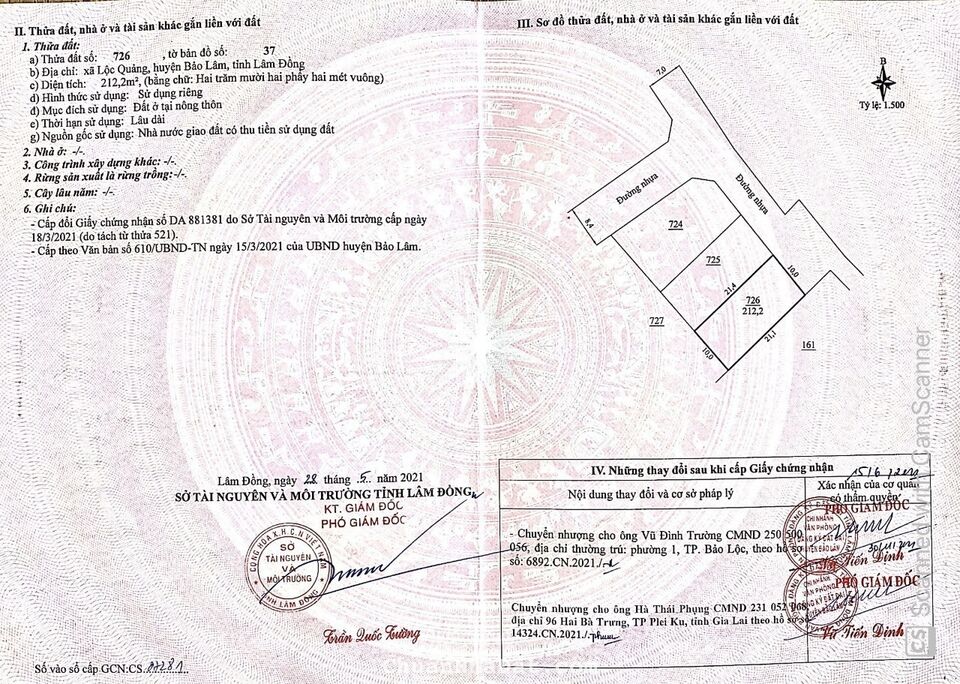 II. Thửa đất, nhà ở và tài sản khác gắn liền với đất
1. Thửa đất:
a) Thửa đất số: 726 , tờ bản đồ số: 37
b) Địa chỉ: xã Lộc Quảng, huyện Bảo Lâm, tỉnh Lâm Đồng
c) Diện tích: 212,2m², (bằng chữ: Hai trăm mười hai phẩy hai mét vuông)
d) Hình thức sử dụng: Sử dụng riêng
đ) Mục đích sử dụng: Đất ở tại nông thôn
e) Thời hạn sử dụng: Lâu dài
g) Nguồn gốc sử dụng: Nhà nước giao đất có thu tiền sử dụng đất
2. Nhà ở: -/-.
3. Công trình xây dựng khác: -/-.
4. Rừng sản xuất là rừng trồng:-/-.
5. Cây lâu năm: -/-.
6. Ghi chú:
- Cấp đổi Giấy chứng nhận số DA 881381 do Sở Tài nguyên và Môi trường cấp ngày
18/3/2021 (do tách từ thửa 521).
- Cấp theo Văn bản số 610/UBND-TN ngày 15/3/2021 của UBND huyện Bảo Lâm.
Lâm Đồng, ngày 28 tháng 5 năm 2021
SỞ TÀI NGUYÊN VÀ MÔI TRƯỜNG TỈNH LÂM ĐỒNG
KT. GIÁM ĐỐC
PHÓ GIÁM ĐỐC
CỘNG HÒA X.H.C.N VIỆT NAM
SỞ
TÀI NGUYÊN
VÀ
MÔI TRƯỜNG
TỈNH LÂM ĐỒNG
Trần Quốc Cường
Số vào sổ cấp GCN:CS.07281
III. Sơ đồ thửa đất, nhà ở và tài sản khác gắn liền với đất
B
Tỷ lệ: 1.500
7,0
Đường nhựa
Đường nhựa
8,4
724
725
10,0
21,4
726
212,2
727
21,1
161
10,0
IV. Những thay đổi sau khi cấp Giấy chứng nhận
Nội dung thay đổi và cơ sở pháp lý
Xác nhận của cơ quan
có thẩm quyền
Chuyển nhượng cho ông Vũ Đình Trường CMND 250 500
056, địa chỉ thường trú: phường 1, TP. Bảo Lộc, theo hồ sơ
số: 6892.CN.2021./-
PHÓ GIÁM ĐỐC
Vũ Tiến Định
Chuyển nhượng cho ông Hà Thái Phụng CMND 231 052 068,
địa chỉ 96 Hai Bà Trưng, TP Plei Ku, tỉnh Gia Lai theo hồ sơ số
14324.CN.2021./-
PHÓ GIÁM ĐỐC
Vũ Tiến Định
CS Scanned with CamScanner